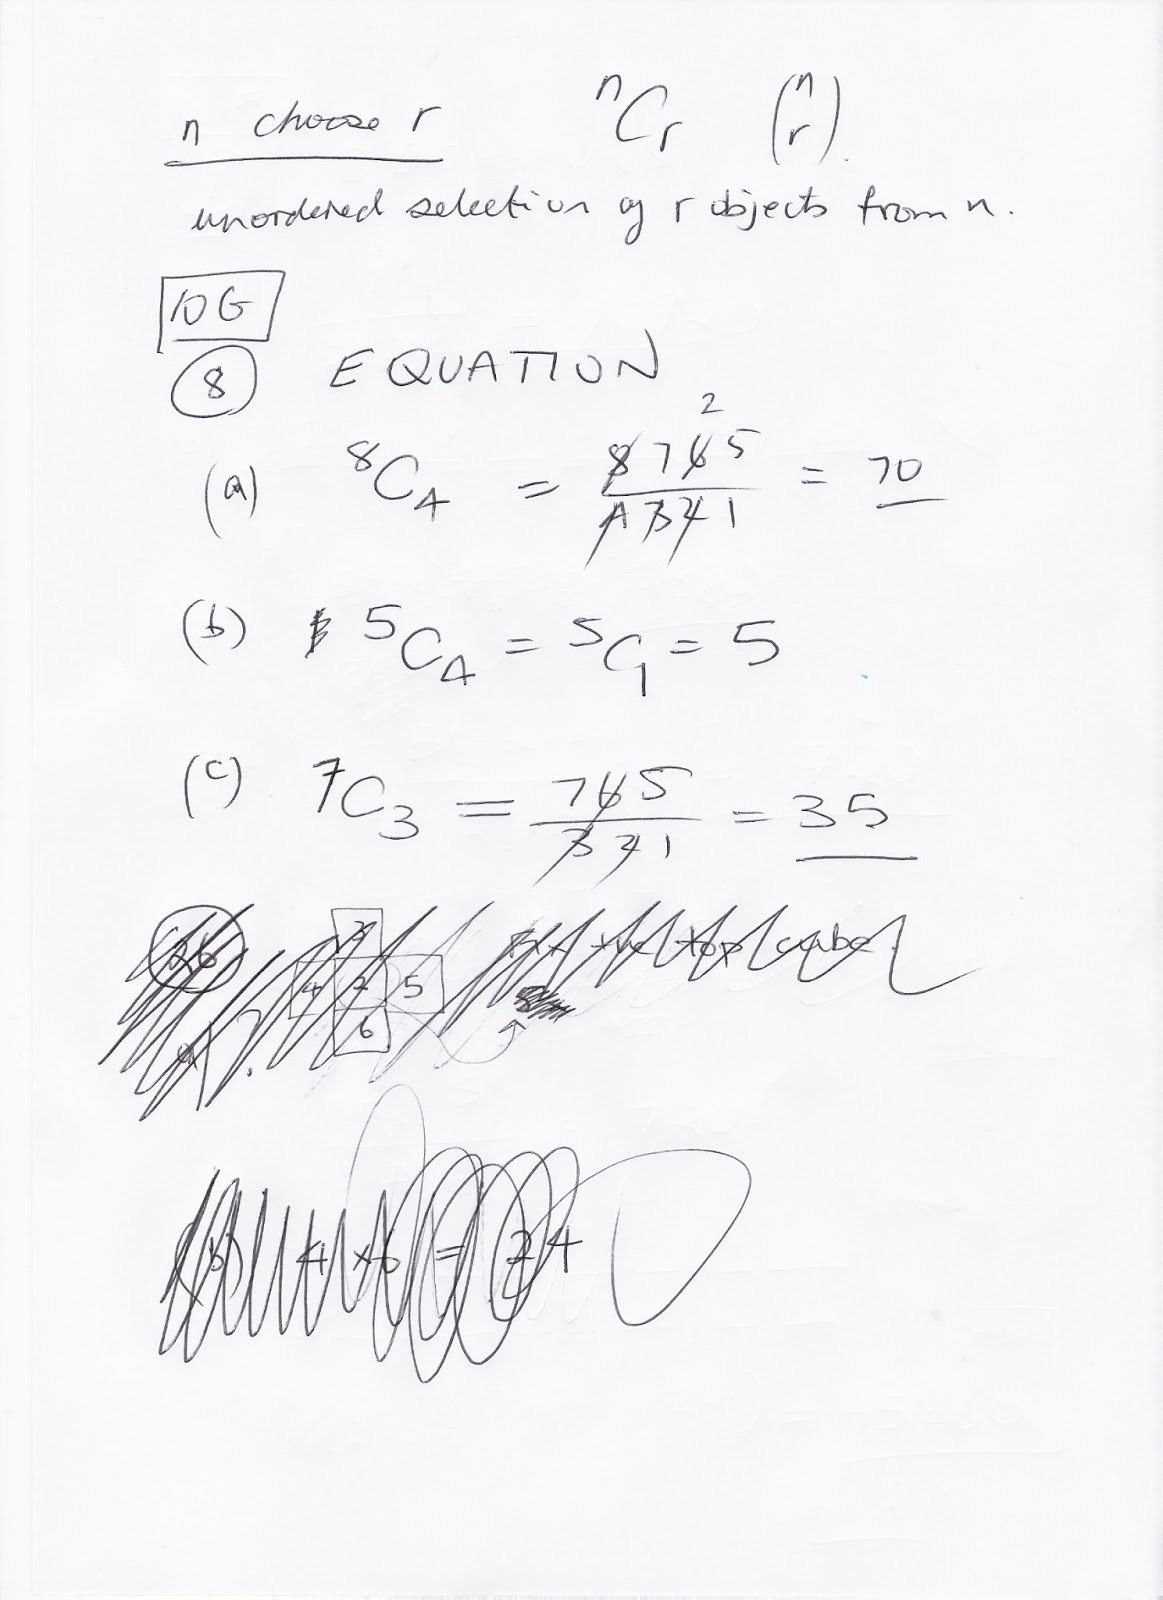 n choose r nCr (n r).
unordered selection of r objects from n.
10G
8 EQUATION
(a) 8C4 = 8 7 6 5 / 4 3 2 1 = 70
2
(b) 5C4 = 5C1 = 5
(c) 7C3 = 7 6 5 / 3 2 1 = 35
3
4 2 5 top cube
6
(b) 4 x 6 = 24